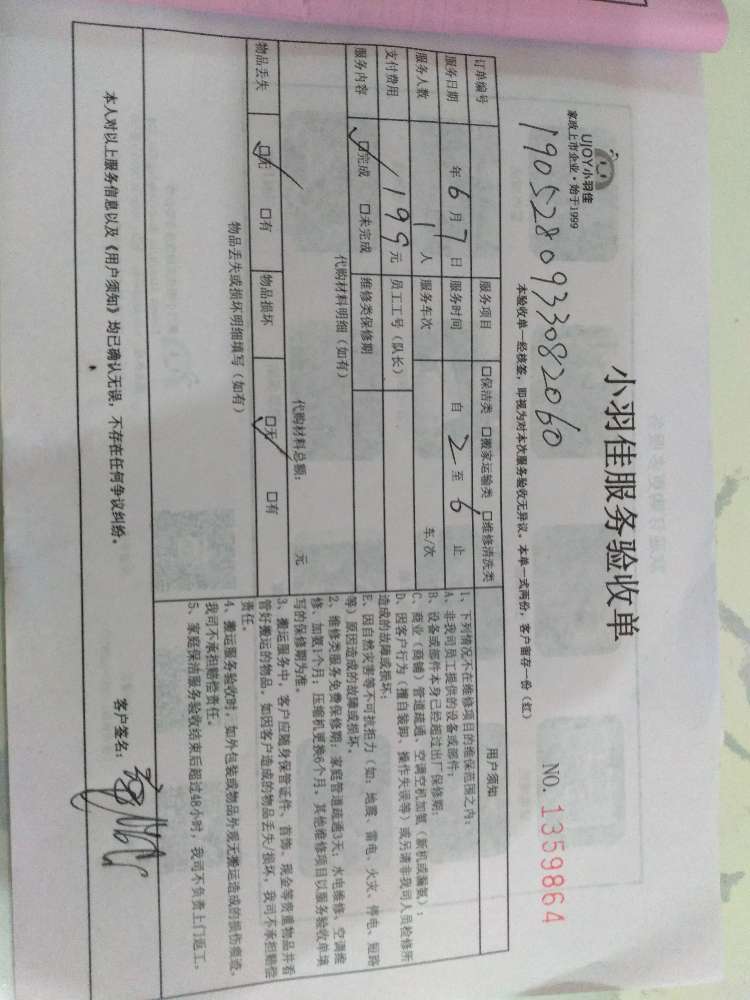 UJOY小羽佳
家政上市企业·始于1999
小羽佳服务验收单
NO. 1359864
1905280933082060
本验收单一经核签，即视为对本次服务验收无异议。本单一式两份，客户留存一份（红）
订单编号 服务项目 口保洁类 口搬家运输类 口维修清洗类
服务日期 年 6 月 7 日 服务时间 自 2 至 6 止
服务人数 1 人 服务车次 车/次
支付费用 199 元 员工工号（队长）
服务内容 口完成 口未完成 维修类保修期
代购材料明细（如有）
代购材料总额： 元
物品丢失 口无 口有 物品损坏 口无 口有
物品丢失或损坏明细填写（如有）
用户须知
1、下列情况不在维修项目的维保范围之内：
A、非我司员工提供的设备或部件；
B、设备或部件本身已经超过出厂保修期；
C、商业（商铺）管道疏通、空调空机加氨（新机或漏氨）；
D、因客户行为（擅自装卸、操作失误等）或另请非我司人员检修所
造成的故障或损坏；
E、因自然灾害等不可抗拒力（如：地震、雷电、火灾、停电、短路
等）原因造成的故障或损坏。
2、维修类服务免费保修期：家庭管道疏通3天；水电维修、空调维
修、加氨1个月；压缩机更换6个月。其他维修项目以服务验收单填
写的保修期为准。
3、搬运服务中，客户应随身保管证件、首饰、现金等贵重物品并看
管好搬运的物品，如因客户造成的物品丢失/损坏，我司不承担赔偿
责任。
4、搬运服务验收时，如外包装或物品外观无搬运造成的损伤痕迹，
我司不承担赔偿责任。
5、家庭保洁服务验收结束后超过48小时，我司不负责上门返工。
本人对以上服务信息以及《用户须知》均已确认无误，不存在任何争议纠纷。
客户签名：